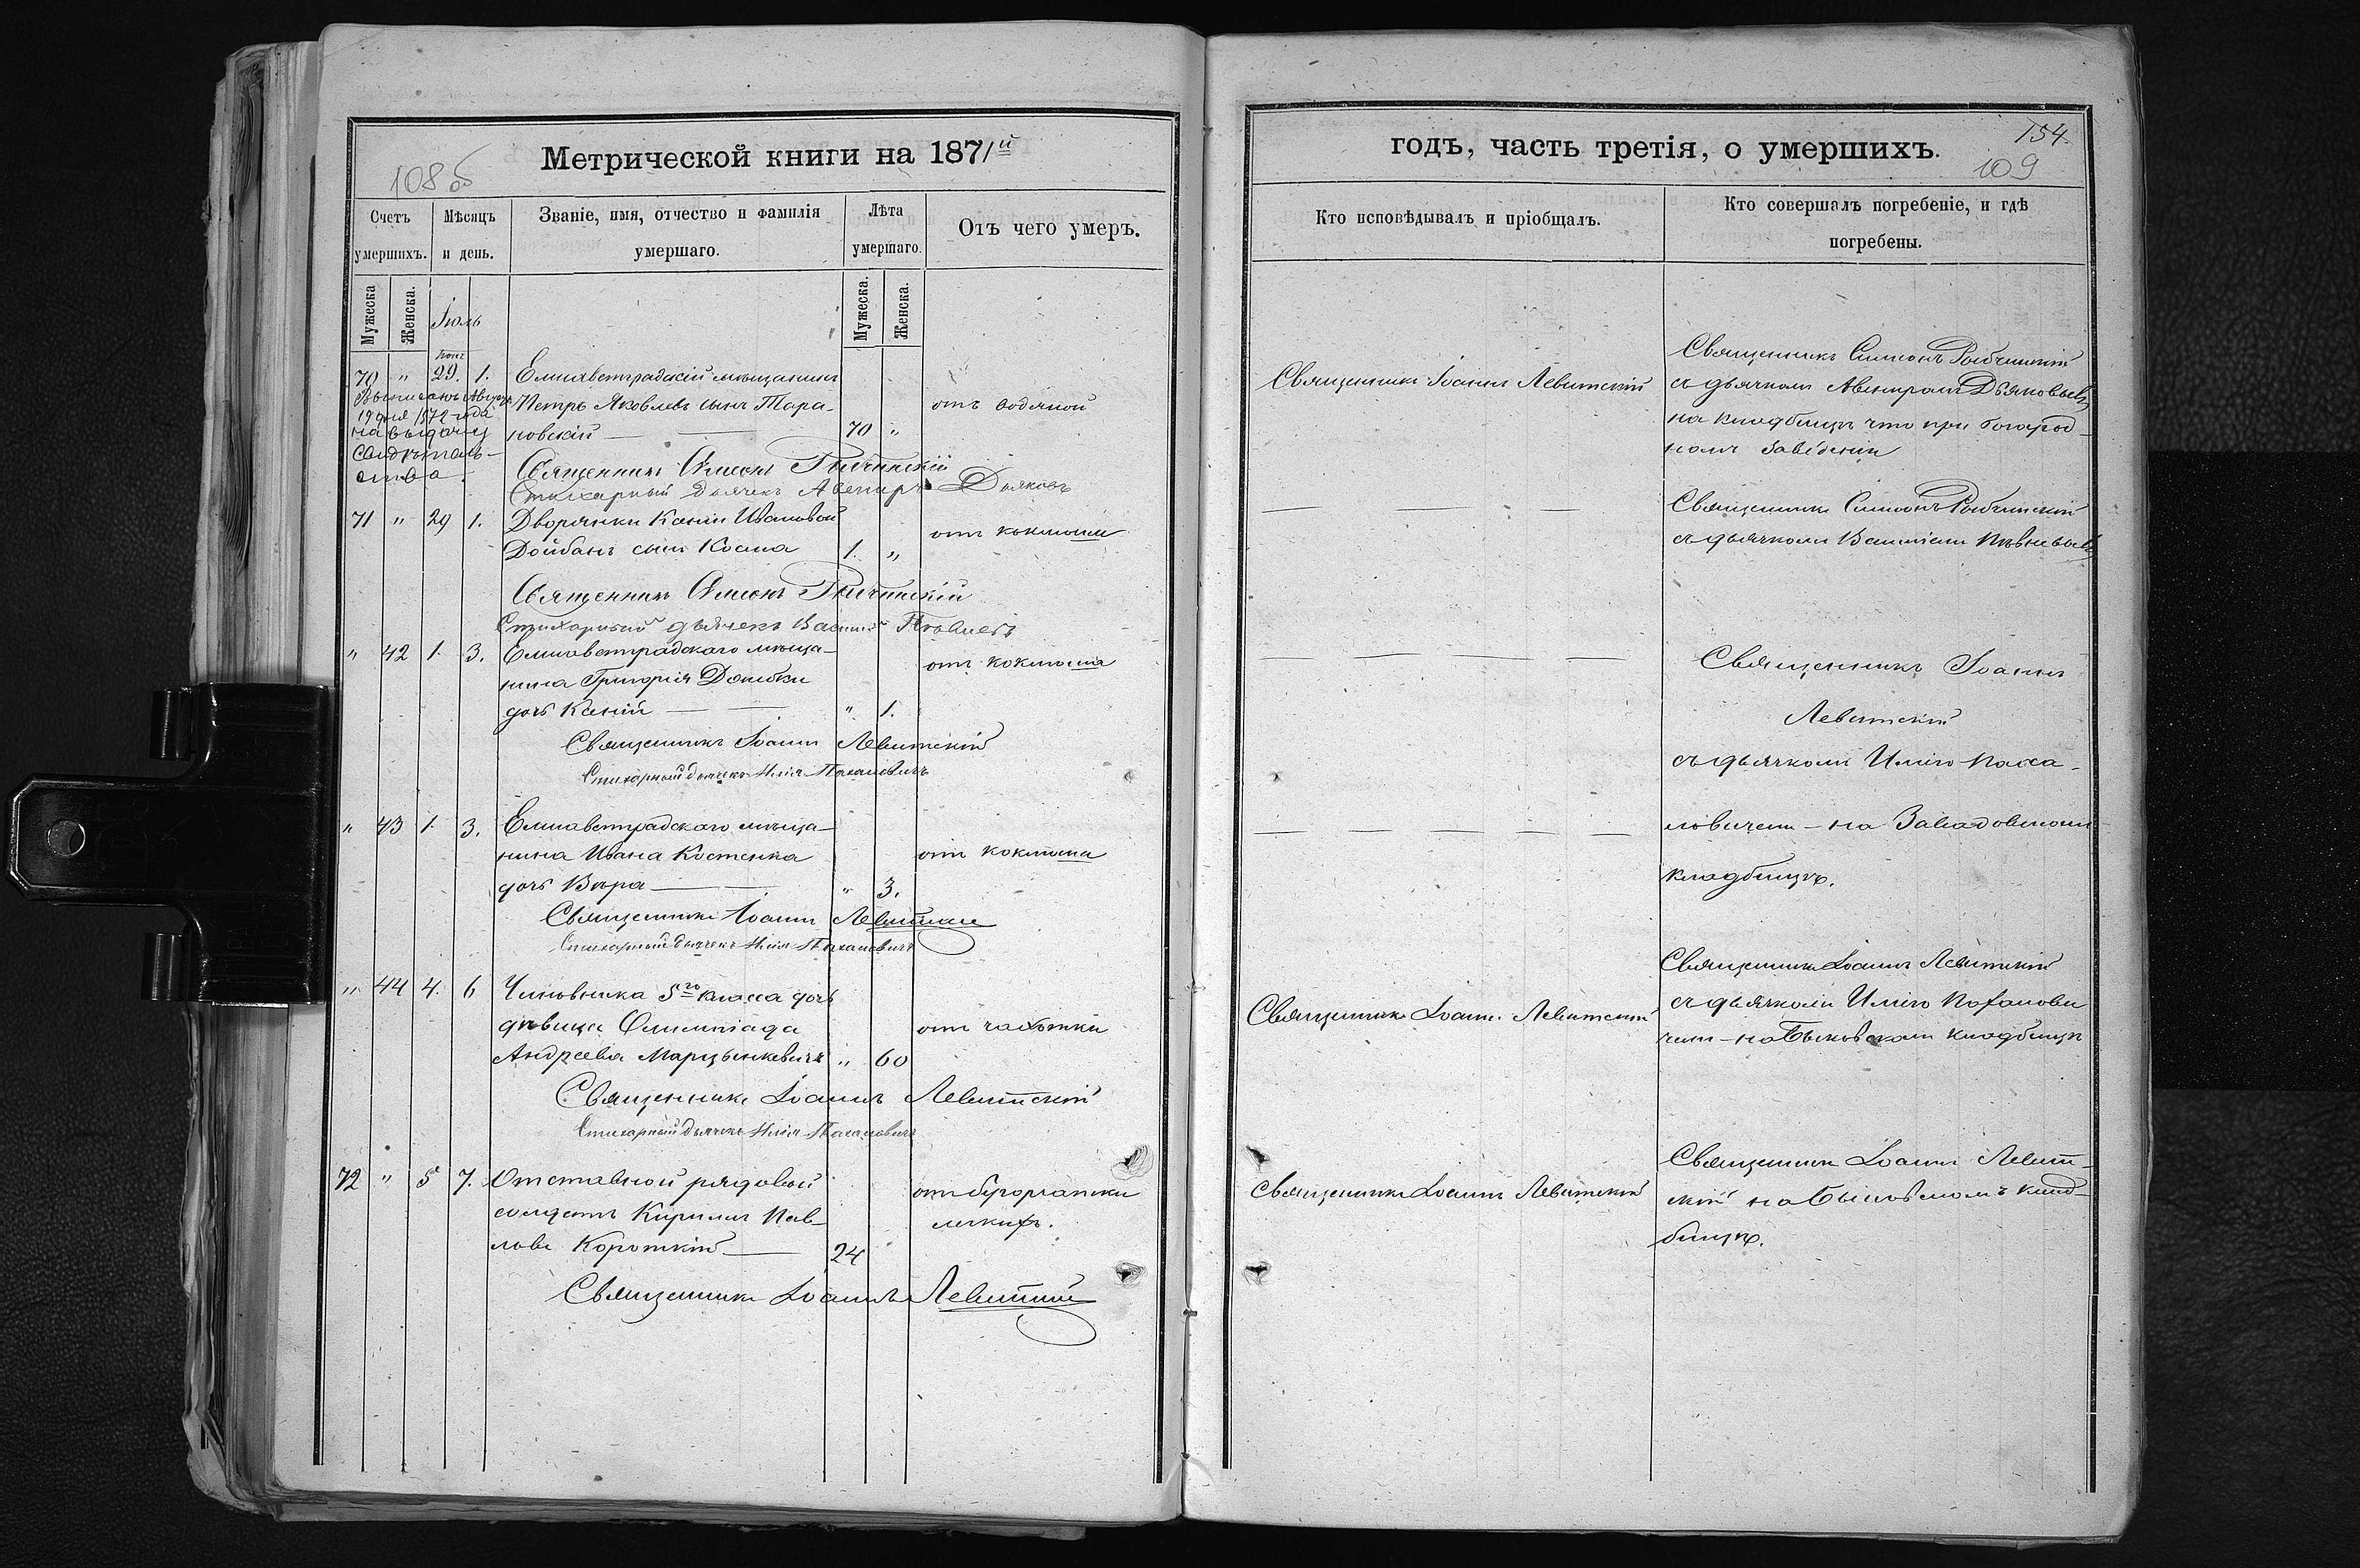 Метрической книги на 1871й
108 об
Счетъ умершихъ.
Мѣсяцъ и день.
Званіе, имя, отчество и фамилія умершаго.
Лѣта умершаго.
Отъ чего умеръ.
Мужеска
Женска.
Іюль
Мужеска.
Женска.
70 " 29. 1. Елисаветградскій мѣщанинъ
Петръ Яковлевъ сынъ Тара-
отъ водяной
новскій — — 70 "
19 дня 1872 года
на выдачу
свидѣтель-
ства.
Священникъ Симеонъ
Стихарный дьячекъ Авениръ Дьяковъ
71 " 29 1. Дворянки Ксеніи Ивановой
отъ коклюша
Дойбанъ сынъ Косма 1. "
Священникъ Симеонъ
Стихарный дьячекъ Василій
" 42 1. 3. Елисаветградскаго мѣща-
отъ коклюша
нина Григорія
дочь Ксенія — — " 1.
Священникъ Іоаннъ Левитскій
Стихарный дьячекъ Илія Пахаловичъ
" 43 1. 3. Елисаветградскаго мѣща-
нина Ивана Костенка
отъ коклюша
дочь Вѣра — — " 3.
Священникъ Іоаннъ Левитскій
Стихарный дьячекъ Илія Пахаловичъ
" 44 4. 6 Чиновника 5го класса дочь
дѣвица Олимпіада
отъ чахотки
Андреева Марцынкевичъ " 60
Священникъ Іоаннъ Левитскій
Стихарный дьячекъ Илія Пахаловичъ
72 " 5 7. Отставной рядовый
отъ бугорчатки
солдатъ Кирилъ Пав-
легкихъ.
ловъ Короткій — 24
Священникъ Іоаннъ Левитскій
годъ, часть третія, о умершихъ.
154.
109
Кто исповѣдывалъ и пріобщалъ.
Кто совершалъ погребеніе, и гдѣ погребены.
Священникъ Іоаннъ Левитскій
Священникъ Симеонъ
съ дьячкомъ Авениромъ Дьяковымъ
на кладбищѣ что при богоугод-
номъ заведеніи
— — —
Священникъ Симеонъ
съ дьячкомъ Василіемъ
— — — — —
Священникъ Іоаннъ
Левитскій
съ дьячкомъ Иліею Паха-
— — — — —
ловичемъ — на
кладбищѣ.
Священникъ Іоаннъ Левитскій
Священникъ Іоаннъ Левитскій
съ дьячкомъ Иліею Пахалови
чемъ — на Быковскомъ кладбищѣ
Священникъ Іоаннъ Левитскій
Священникъ Іоаннъ Левит-
скій на Быковскомъ клад-
бищѣ.